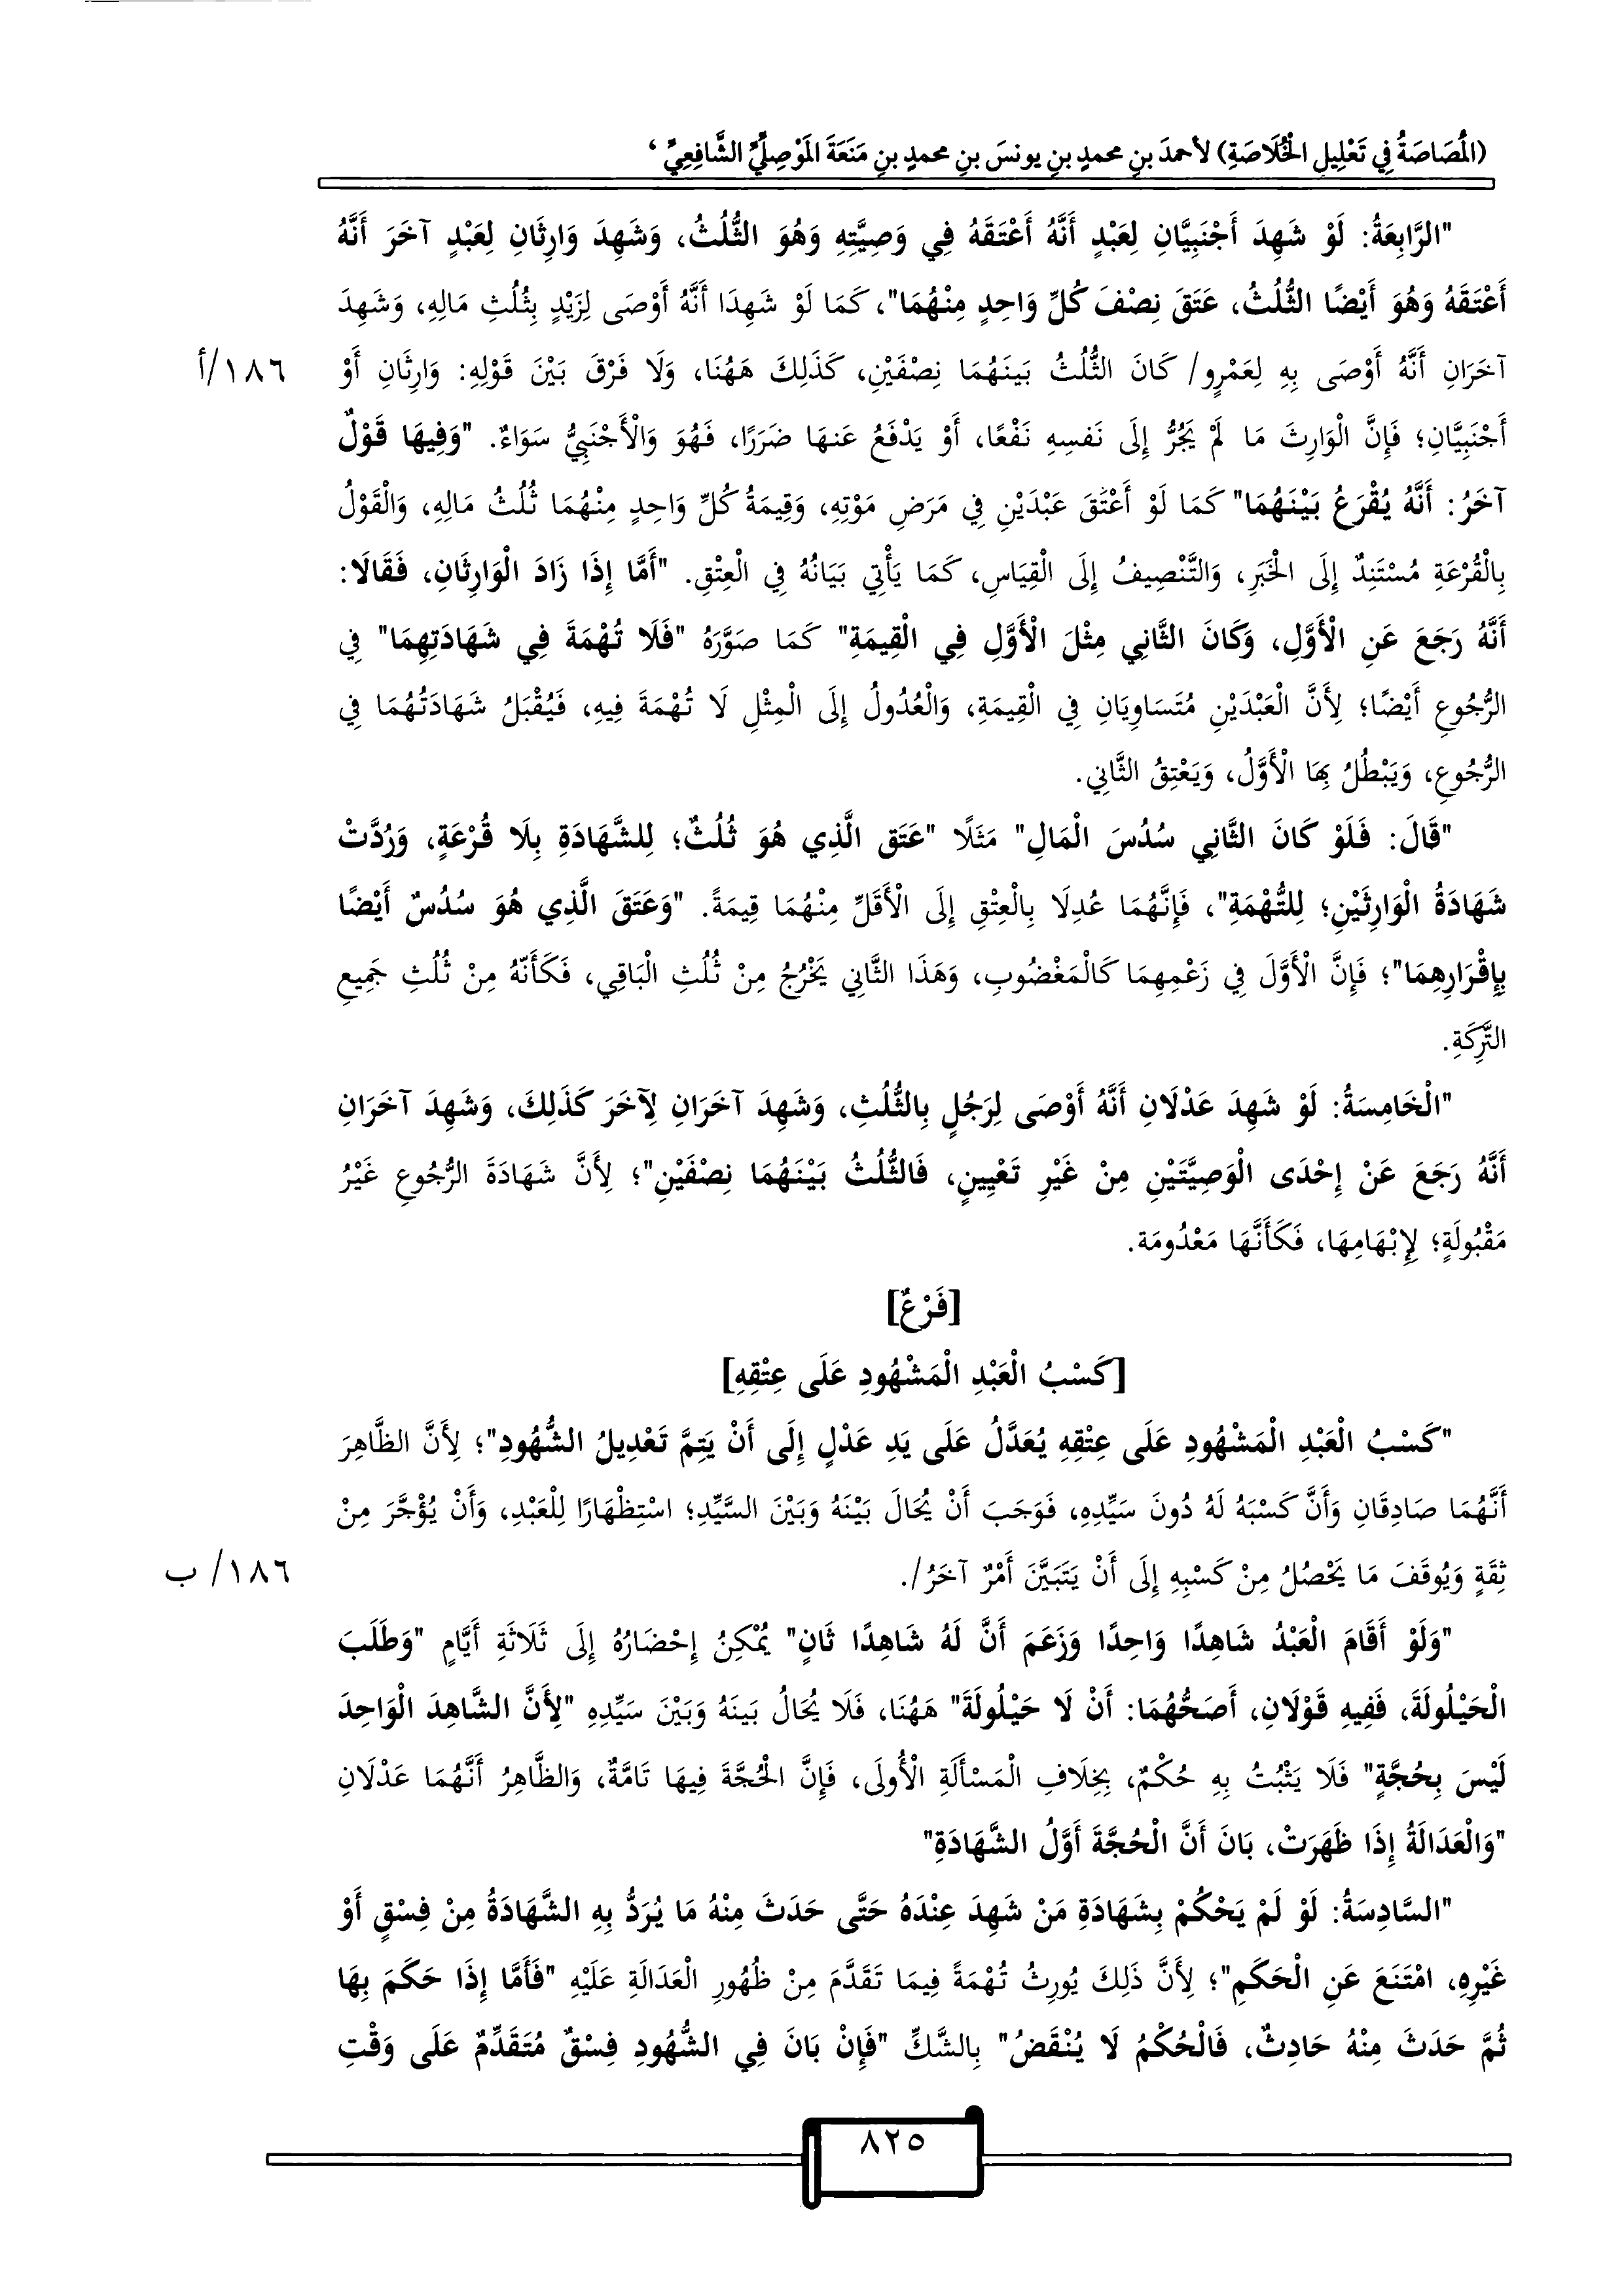 (الْمُصَاصَةُ فِي تَعْلِيلِ الْخُلَاصَةِ) لأحمدَ بنِ محمدٍ بنِ يونسَ بنِ محمدٍ بنِ مَنَعَةَ الْمَوْصِلِيِّ الشَّافِعِيِّ ،
"الرَّابِعَةُ: لَوْ شَهِدَ أَجْنَبِيَّانِ لِعَبْدٍ أَنَّهُ أَعْتَقَهُ فِي وَصِيَّتِهِ وَهُوَ الثُّلُثُ، وَشَهِدَ وَارِثَانِ لِعَبْدٍ آخَرَ أَنَّهُ
أَعْتَقَهُ وَهُوَ أَيْضًا الثُّلُثُ، عَتَقَ نِصْفَ كُلِّ وَاحِدٍ مِنْهُمَا"، كَمَا لَوْ شَهِدَا أَنَّهُ أَوْصَى لِزَيْدٍ بِثُلُثِ مَالِهِ، وَشَهِدَ
آخَرَانِ أَنَّهُ أَوْصَى بِهِ لِعَمْرٍو/ كَانَ الثُّلُثُ بَيْنَهُمَا نِصْفَيْنِ، كَذَلِكَ هَهُنَا، وَلَا فَرْقَ بَيْنَ قَوْلِهِ: وَارِثَانِ أَوْ
١٨٦/أ
أَجْنَبِيَّانِ؛ فَإِنَّ الْوَارِثَ مَا لَمْ يَجُرُّ إِلَى نَفسِهِ نَفْعًا، أَوْ يَدْفَعُ عَنهَا ضَرَرًا، فَهُوَ وَالْأَجْنَبِيُّ سَوَاءٌ. "وَفِيهَا قَوْلٌ
آخَرُ: أَنَّهُ يُقْرَعُ بَيْنَهُمَا" كَمَا لَوْ أَعْتَقَ عَبْدَيْنِ فِي مَرَضِ مَوْتِهِ، وَقِيمَةُ كُلِّ وَاحِدٍ مِنْهُمَا ثُلُثُ مَالِهِ، وَالْقَوْلُ
بِالْقُرْعَةِ مُسْتَنِدٌ إِلَى الْخَبَرِ، وَالتَّنْصِيفُ إِلَى الْقِيَاسِ، كَمَا يَأْتِي بَيَانُهُ فِي الْعِتْقِ. "أَمَّا إِذَا زَادَ الْوَارِثَانِ، فَقَالَا:
أَنَّهُ رَجَعَ عَنِ الْأَوَّلِ، وَكَانَ الثَّانِي مِثْلَ الْأَوَّلِ فِي الْقِيمَةِ" كَمَا صَوَّرَهُ "فَلَا تُهْمَةَ فِي شَهَادَتِهِمَا" فِي
الرُّجُوعِ أَيْضًا؛ لِأَنَّ الْعَبْدَيْنِ مُتَسَاوِيَانِ فِي الْقِيمَةِ، وَالْعُدُولُ إِلَى الْمِثْلِ لَا تُهْمَةَ فِيهِ، فَيُقْبَلُ شَهَادَتُهُمَا فِي
الرُّجُوعِ، وَيَبْطُلُ بِهَا الْأَوَّلُ، وَيَعْتِقُ الثَّانِي.
"قَالَ: فَلَوْ كَانَ الثَّانِي سُدُسَ الْمَالِ" مَثَلًا "عَتَقَ الَّذِي هُوَ ثُلُثٌ؛ لِلشَّهَادَةِ بِلَا قُرْعَةٍ، وَرُدَّتْ
شَهَادَةُ الْوَارِثَيْنِ؛ لِلتُّهْمَةِ"، فَإِنَّهُمَا عُدِلَا بِالْعِتْقِ إِلَى الْأَقَلِّ مِنْهُمَا قِيمَةً. "وَعَتَقَ الَّذِي هُوَ سُدُسٌ أَيْضًا
بِإِقْرَارِهِمَا"؛ فَإِنَّ الْأَوَّلَ فِي زَعْمِهِمَا كَالْمَغْصُوبِ، وَهَذَا الثَّانِي يَخْرُجُ مِنْ ثُلُثِ الْبَاقِي، فَكَأَنَّهُ مِنْ ثُلُثِ جَمِيعِ
التَّرِكَةِ.
"الْخَامِسَةُ: لَوْ شَهِدَ عَدْلَانِ أَنَّهُ أَوْصَى لِرَجُلٍ بِالثُّلُثِ، وَشَهِدَ آخَرَانِ لِآخَرَ كَذَلِكَ، وَشَهِدَ آخَرَانِ
أَنَّهُ رَجَعَ عَنْ إِحْدَى الْوَصِيَّتَيْنِ مِنْ غَيْرِ تَعْيِينٍ، فَالثُّلُثُ بَيْنَهُمَا نِصْفَيْنِ"؛ لِأَنَّ شَهَادَةَ الرُّجُوعِ غَيْرُ
مَقْبُولَةٍ؛ لِإِبْهَامِهَا، فَكَأَنَّهَا مَعْدُومَة.
[فَرْعٌ]
[كَسْبُ الْعَبْدِ الْمَشْهُودِ عَلَى عِتْقِهِ]
"كَسْبُ الْعَبْدِ الْمَشْهُودِ عَلَى عِتْقِهِ يُعَدَّلُ عَلَى يَدِ عَدْلٍ إِلَى أَنْ يَتِمَّ تَعْدِيلُ الشُّهُودِ"؛ لِأَنَّ الظَّاهِرَ
أَنَّهُمَا صَادِقَانِ وَأَنَّ كَسْبَهُ لَهُ دُونَ سَيِّدِهِ، فَوَجَبَ أَنْ يُحَالَ بَيْنَهُ وَبَيْنَ السَّيِّدِ؛ اسْتِظْهَارًا لِلْعَبْدِ، وَأَنْ يُؤْجَّرَ مِنْ
ثِقَةٍ وَيُوقَفَ مَا يَحْصُلُ مِنْ كَسْبِهِ إِلَى أَنْ يَتَبَيَّنَ أَمْرٌ آخَرُ/.
١٨٦/ ب
"وَلَوْ أَقَامَ الْعَبْدُ شَاهِدًا وَاحِدًا وَزَعَمَ أَنَّ لَهُ شَاهِدًا ثَانٍ" يُمْكِنُ إِحْضَارُهُ إِلَى ثَلَاثَةِ أَيَّامٍ "وَطَلَبَ
الْحَيْلُولَةَ، فَفِيهِ قَوْلَانِ، أَصَحُّهُمَا: أَنْ لَا حَيْلُولَةَ" هَهُنَا، فَلَا يُحَالُ بَينَهُ وَبَيْنَ سَيِّدِهِ "لِأَنَّ الشَّاهِدَ الْوَاحِدَ
لَيْسَ بِحُجَّةٍ" فَلَا يَثْبُتُ بِهِ حُكْمٌ، بِخِلَافِ الْمَسْأَلَةِ الْأُولَى، فَإِنَّ الْحُجَّةَ فِيهَا تَامَّةٌ، وَالظَّاهِرُ أَنَّهُمَا عَدْلَانِ
"وَالْعَدَالَةُ إِذَا ظَهَرَتْ، بَانَ أَنَّ الْحُجَّةَ أَوَّلُ الشَّهَادَةِ"
"السَّادِسَةُ: لَوْ لَمْ يَحْكُمْ بِشَهَادَةِ مَنْ شَهِدَ عِنْدَهُ حَتَّى حَدَثَ مِنْهُ مَا يُرَدُّ بِهِ الشَّهَادَةُ مِنْ فِسْقٍ أَوْ
غَيْرِهِ، امْتَنَعَ عَنِ الْحَكَمِ"؛ لِأَنَّ ذَلِكَ يُورِثُ تُهْمَةً فِيمَا تَقَدَّمَ مِنْ ظُهُورِ الْعَدَالَةِ عَلَيْهِ "فَأَمَّا إِذَا حَكَمَ بِهَا
ثُمَّ حَدَثَ مِنْهُ حَادِثٌ، فَالْحُكْمُ لَا يُنْقَضُ" بِالشَّكِّ "فَإِنْ بَانَ فِي الشُّهُودِ فِسْقٌ مُتَقَدِّمٌ عَلَى وَقْتِ
٨٢٥